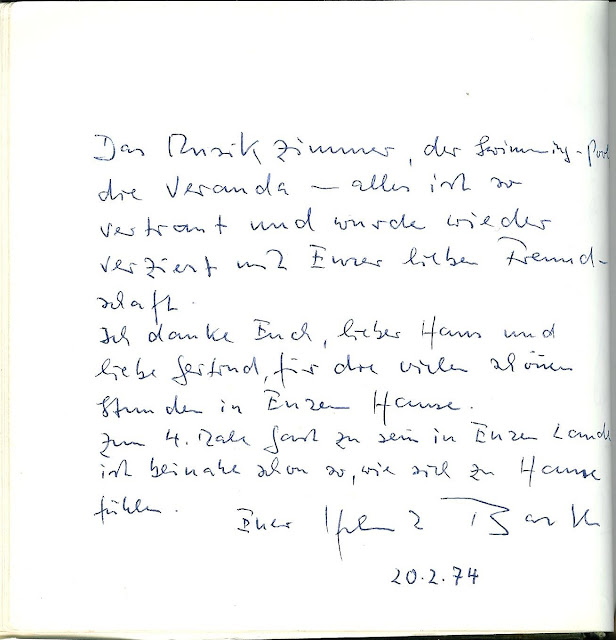 Das Musikzimmer, der Swimming-Pool
die Veranda – alles ist so
vertraut und wurde wieder
verziert mit Eurer lieben Freund-
schaft.
Ich danke Euch, lieber Hans und
liebe Gertrud, für die vielen schönen
Stunden in Eurem Hause.
Zum 4. Male Gast zu sein in Eurem Lande
ist beinahe schon so, wie sich zu Hause
fühlen. Euer
20.2.74